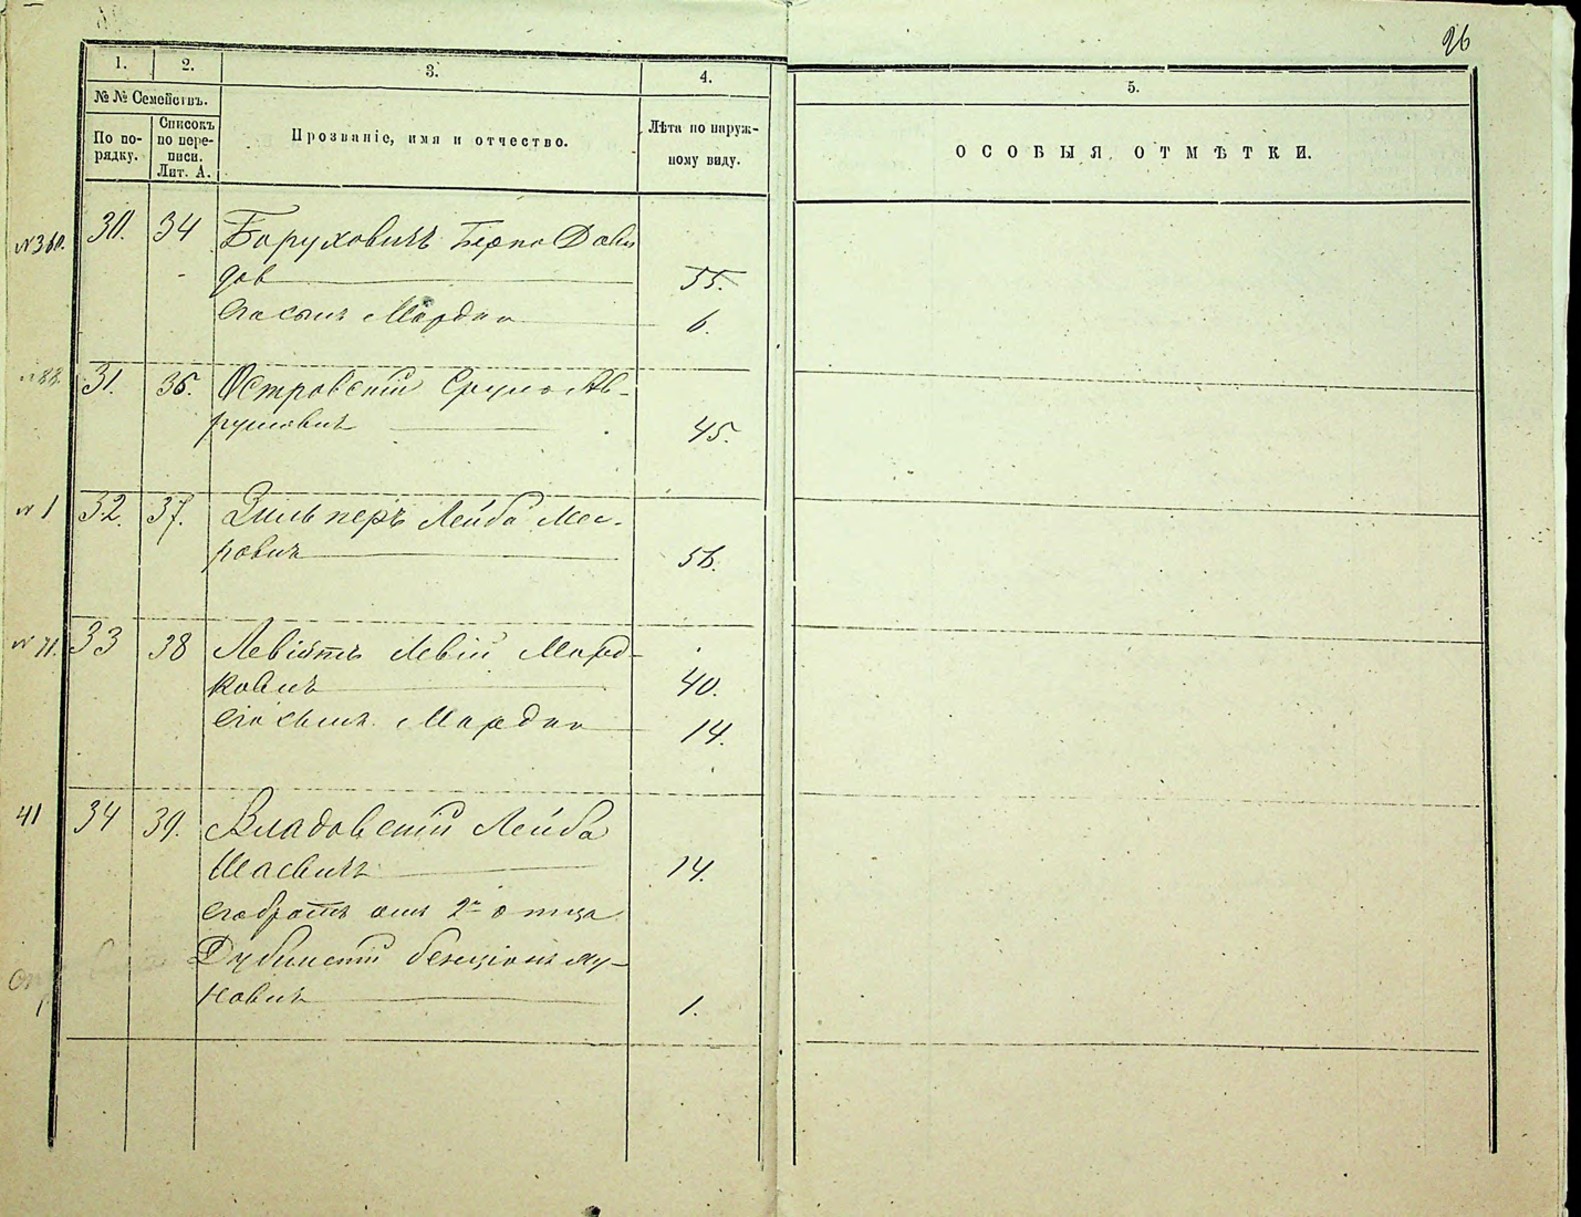 26
1. 2. 3. 4. 5.
№ № Семействъ.
По по-
рядку.
Списокъ
по пере-
писи.
Лит. А.
Прозваніе, имя и отчество.
Лѣта по наруж-
ному виду.
ОСОБЫЯ ОТМѢТКИ.
30. 34 Боруховичъ Берко Дави
дов 55.
его сынъ Мордко 6.
31. 36. Островскій Сруль Аб-
румовичъ 45.
№ 1 32. 37. Зильперъ Лейба Мее-
ровичъ 56.
№ 71. 33 38 Левійтъ Левій Морд-
ковичъ 40.
его сынъ Мордко 14.
41 34 39. Владовскій Лейба
14.
его братъ отъ 2го отца
Дубинскій Бенціонъ
новичъ 1.